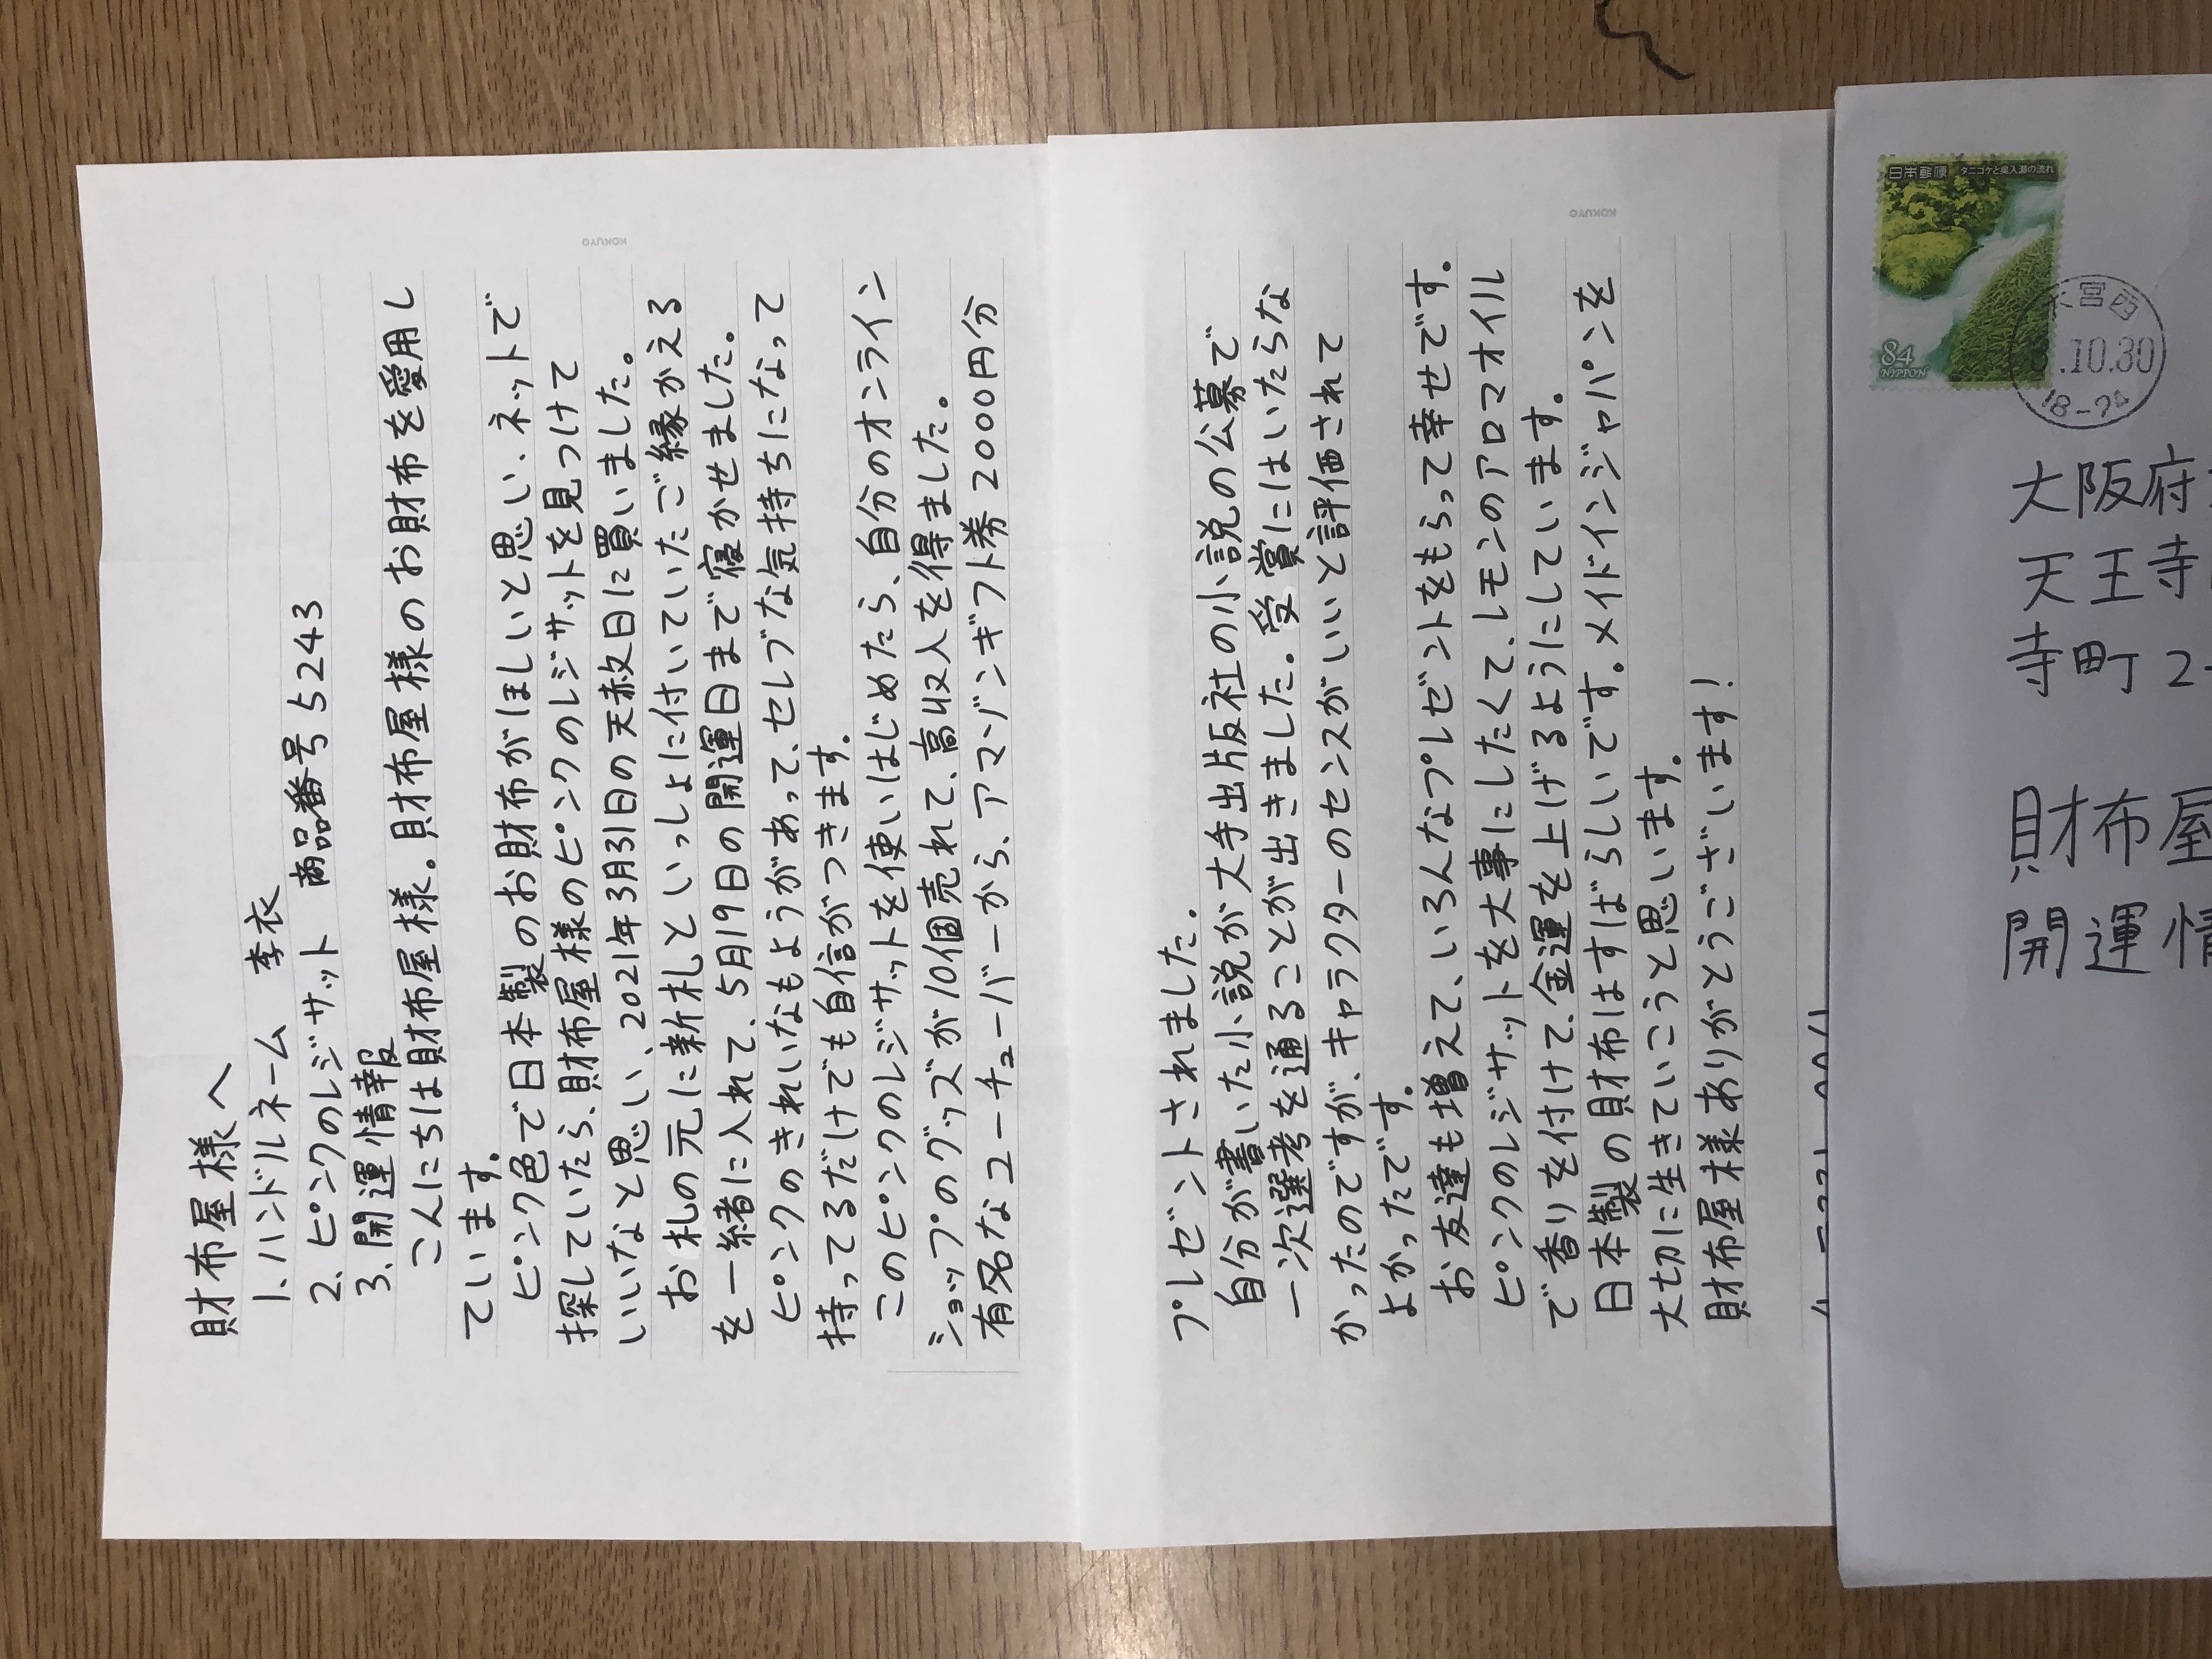 財布屋様へ
1、ハンドルネーム 李衣
2、ピンクのレジサット 商品番号5243
3、開運情報
こんにちは財布屋様。財布屋様のお財布を愛用し
ています。
ピンク色で日本製のお財布がほしいと思い、ネットで
探していたら、財布屋様のピンクのレジサットを見つけて
いいなと思い、2021年3月31日の天赦日に買いました。
お札の元に新札といっしょに付いていたご縁かえる
を一緒に入れて、5月19日の開運日まで寝かせました。
ピンクのきれいなもようがあって、セレブな気持ちになって
持ってるだけでも自信がつきます。
このピンクのレジサットを使いはじめたら、自分のオンライン
ショップのグッズが10個売れて、高収入を得ました。
有名なユーチューバーから、アマゾンギフト券2000円分
KOKUYO
プレゼントされました。
自分が書いた小説が大手出版社の小説の公募で
一次選考を通ることが出きました。受賞にはいたらな
かったのですが、キャラクターのセンスがいいと評価されて
よかったでです。
お友達も増えて、いろんなプレゼントをもらって幸せです。
ピンクのレジサットを大事にしたくて、レモンのアロマオイル
で香りを付けて、金運を上げるようにしています。
日本製の財布はすばらしいです。メイドインジャパンを
大切に生きていこうと思います。
財布屋様ありがとうございます!
KOKUYO
日本郵便 タニゴケと奥入瀬の流れ
84
NIPPON
宮西
.10.30
18-24
大阪府
天王寺
寺町2-
財布屋
開運情